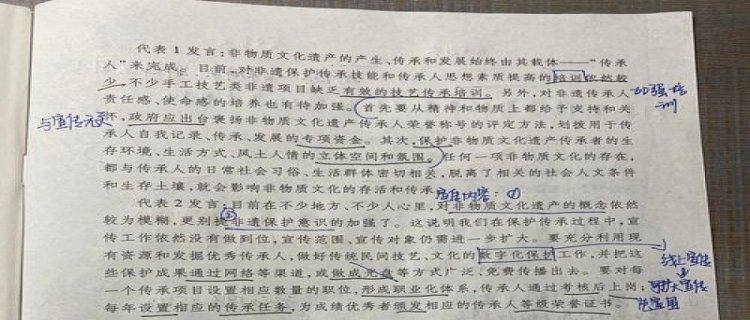 代表1发言:非物质文化遗产的产生、传承和发展始终由其载体——“传承
人”来完成。目前,对非遗保护传承技能和传承人思想素质提高的培训依然较
少,不少手工技艺类非遗项目缺乏有效的技艺传承培训。另外,对非遗传承人
加强培训
责任感、使命感的培养也有待加强。首先要从精神和物质上都给予支持和关
与宣传无关
怀,政府应出台褒扬非物质文化遗产传承人荣誉称号的评定方法,划拨用于传
承人自我记录、传承、发展的专项资金。其次,保护非物质文化遗产传承者的生
存环境、生活方式、风土人情的立体空间和氛围。任何一项非物质文化的存在,
都与传承人的日常社会习俗、生活群体密切相关,脱离了相关的社会人文条件
和生存土壤,就会影响非物质文化的存活和传承。
宣传内容:①
代表2发言:目前在不少地方、不少人心里,对非物质文化遗产的概念依然
较为模糊,更别提②非遗保护意识的加强了。这说明我们在保护传承过程中,宣
传工作依然没有做到位,宣传范围、宣传对象仍需进一步扩大。要充分利用现
有资源和发掘优秀传承人,做好传统民间技艺、文化的数字化保护工作,并把这
线上宣传
些保护成果通过网络等渠道,或做成光盘等方式广泛、免费传播出去。要对每
扩大宣传
一个传承项目设置相应数量的职位,形成职业化体系,传承人通过考核后上岗;
范围
每年设置相应的传承任务,为成绩优秀者颁发相应的传承人等级荣誉证书。